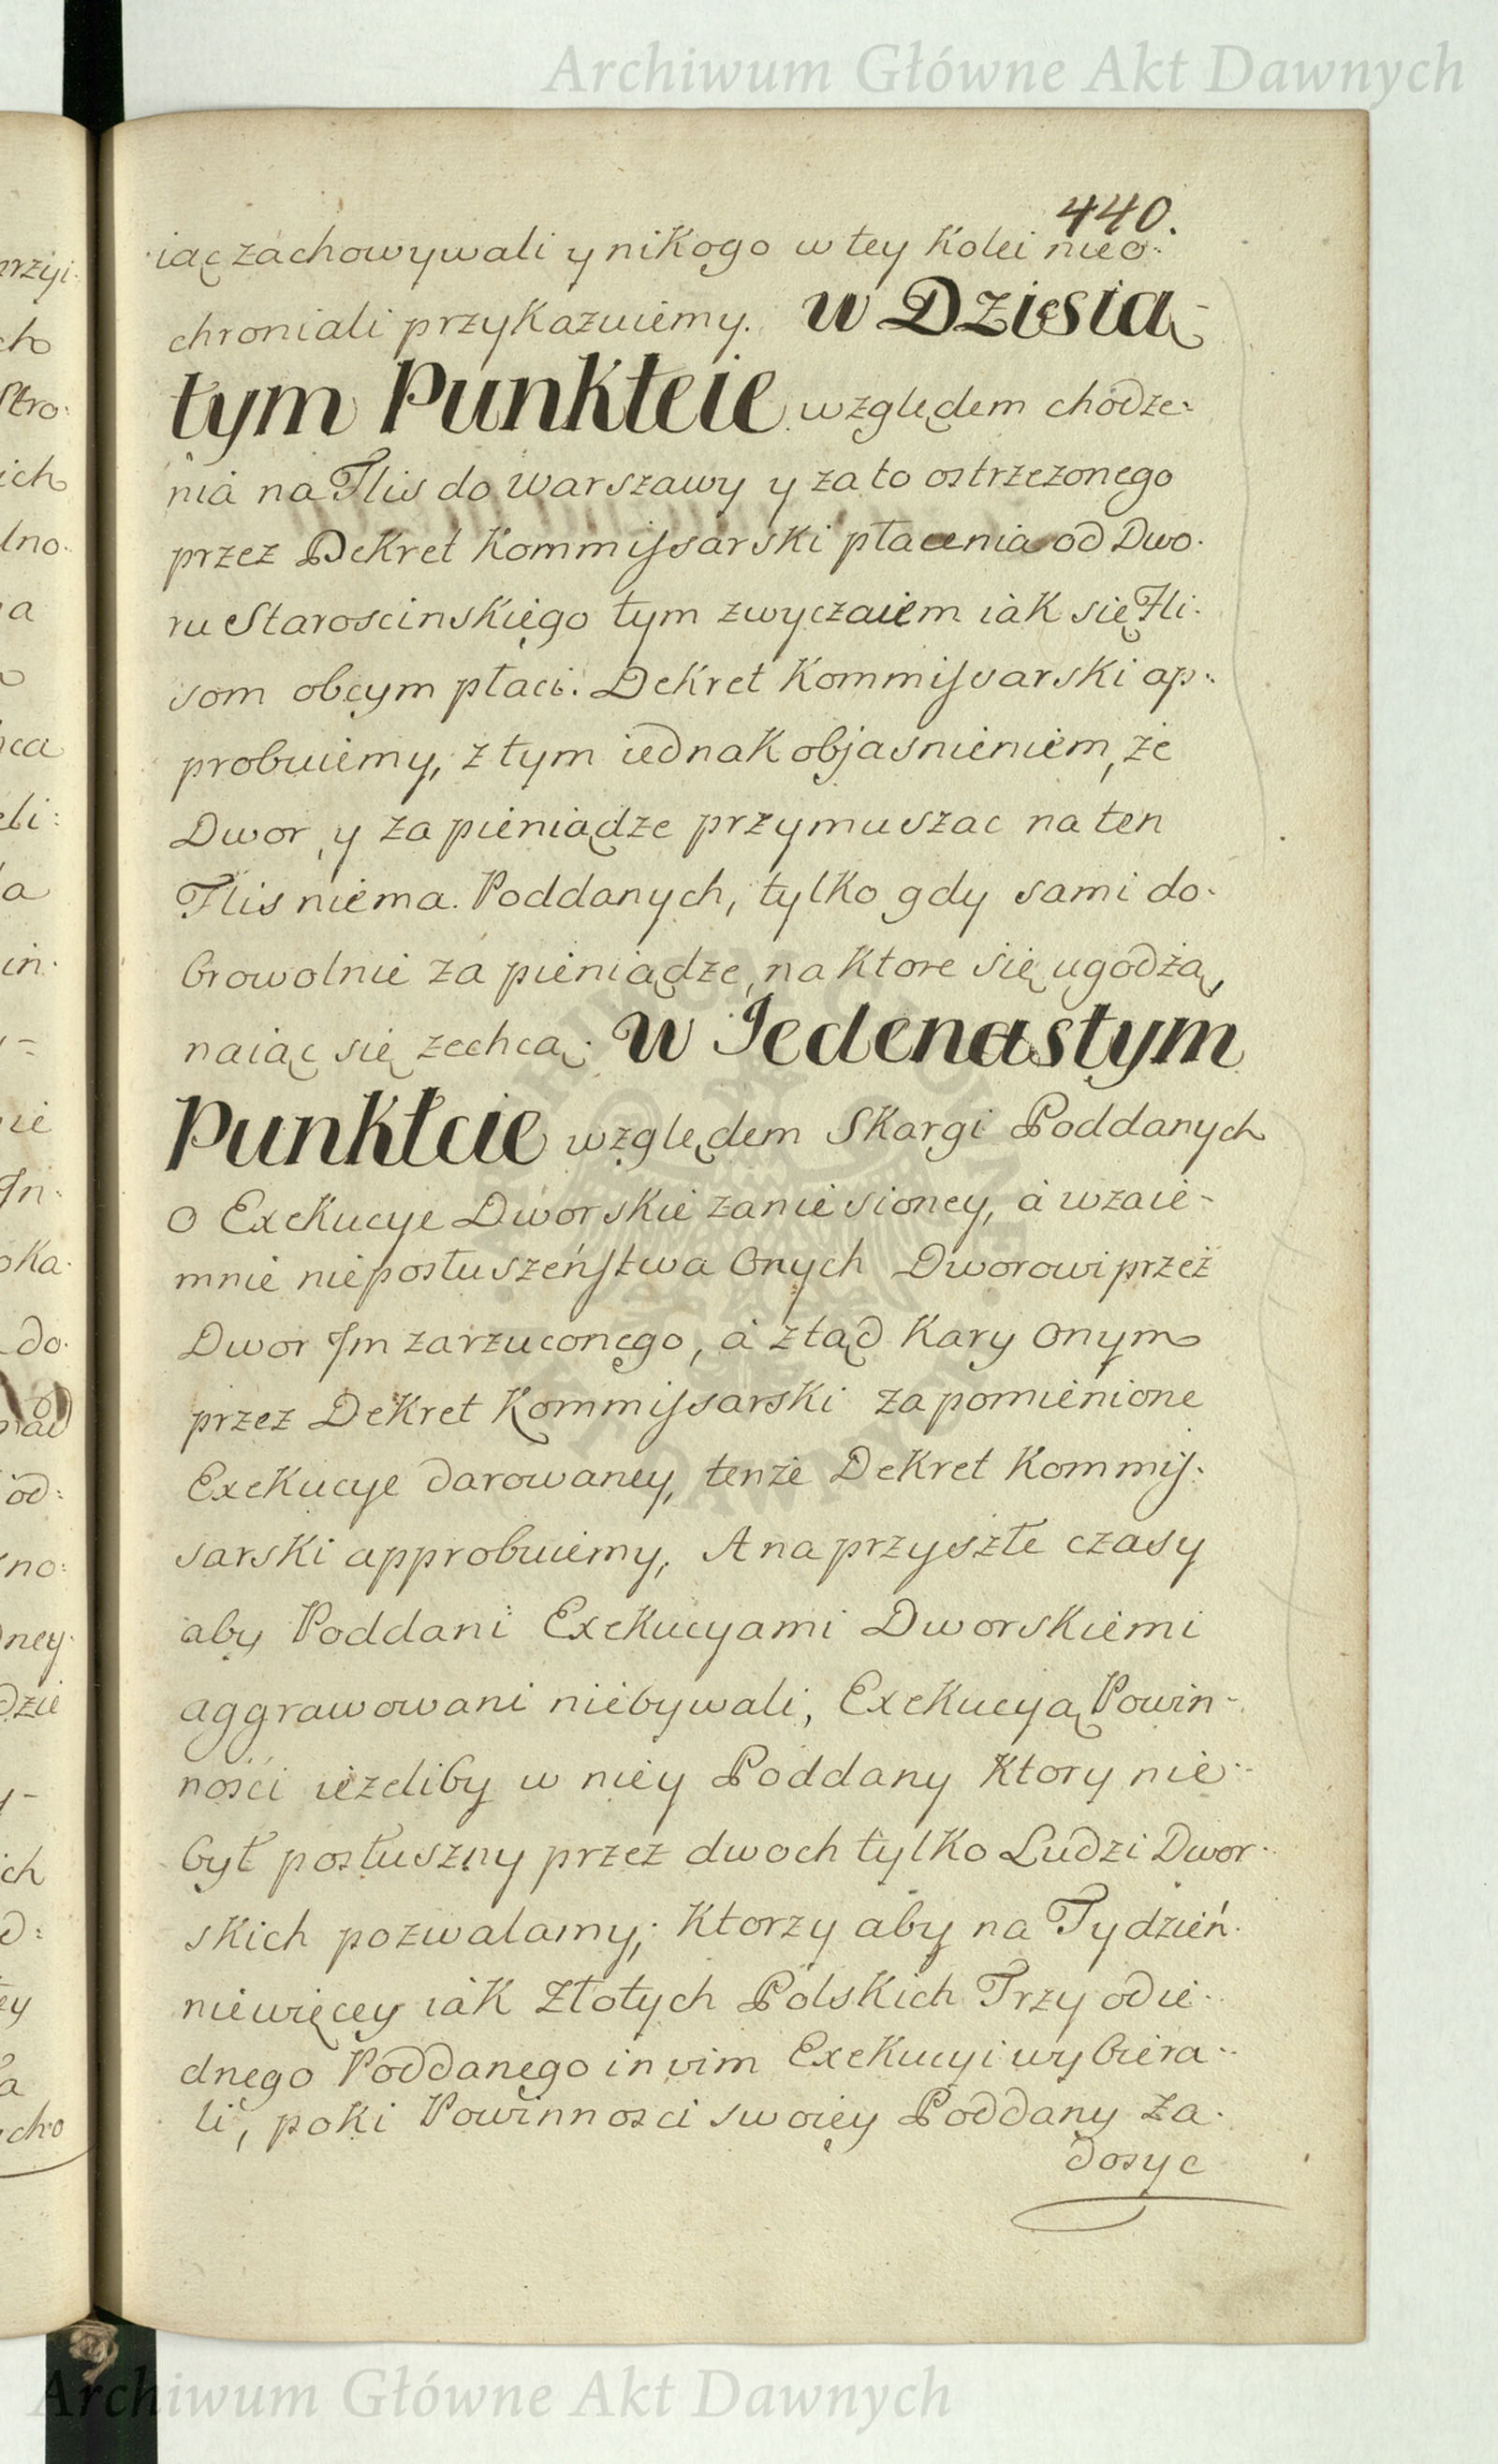 Archiwum Główne Akt Dawnych
440.
iąc zachowywali y nikogo w tey Kolei nieo:
chroniali przykazuiemy. w Dziesią-
tym Punkteie względem chodze:
nia na Flis do Warszawy y za to ostrzezonego
przez Dekret Kommissarski płacenia od Dwo.
ru Staroscinskiego tym zwyczaiem iak się Fli.
som obcym płaci. Dekret Kommissarski ap:
probuiemy, z tym iednak objasnieniem, że
Dwor, y za pieniądze przymuszac na ten
Flis niema. Poddanych, tylko gdy sami do.
browolnie za pieniądze, na ktore się ugodzą,
naiąc się zechcą. w Jedenastym
Punktcie względem Skargi Poddanych
o Exekucye Dworskie zaniesioney, á wzaie-
mnie nieposłuszeństwa Onych Dworowi przez
Dwor Jm zarzuconego, á ztąd Kary Onym
przez Dekret Kommissarski za pomienione
Exekucye darowaney, tenże Dekret Kommis:
sarski approbuiemy, A na przyszłe czasy
aby Poddani Exekucyami Dworskiemi
aggrawowani niebywali, Exekucyą Powin-
ności ieżeliby w niey Poddany Ktory nie-
był posłuszny przez dwoch tylko Ludzi Dwor-
skich pozwalamy; Ktorzy aby na Tydzień.
niewięcey iak Złotych Polskich Trzy od ie-
dnego Poddanego in vim Exekucyi wybiera-
li, poki Powinnosci swoiey Poddany Za.
dosyc
Archiwum Główne Akt Dawnych